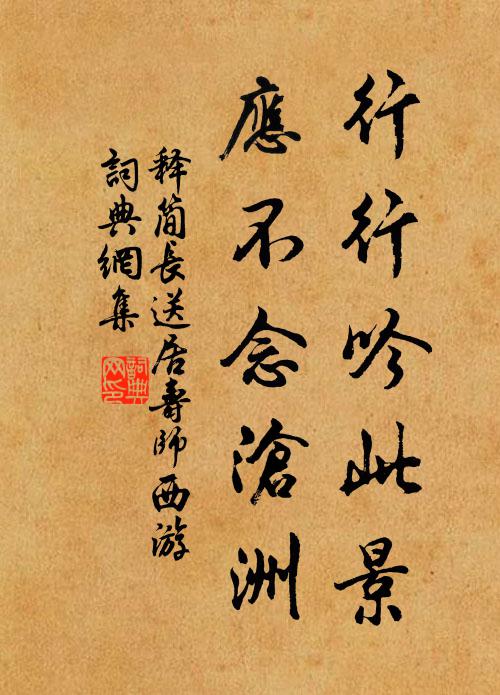 行行吟此景
應不念滄洲
释簡長送居壽師西游
詞典網集
詞典
网印